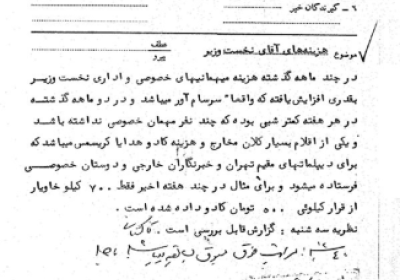 ٦ ــ گیرندگان خبر
موضوع هزینه‌های آقای نخست وزیر
عطف
پیرو
در چند ماهه گذشته هزینه میهمانیهای خصوصی و اداری نخست وزیر
بقدری افزایش یافته که واقعا" سرسام آور میباشد و در دو ماهه گذشته
در هر هفته کمتر شبی بوده که چند نفر مهمان خصوصی نداشته باشد
و یکی از اقلام بسیار کلان مخارج و هزینه کادو هدایا کریسمس میباشد که
برای دیپلماتهای مقیم تهران و خبرنگاران خارجی و دوستان خصوصی
فرستاده میشود و برای مثال در چند هفته اخیر فقط ٧٠٠ کیلو خاویار
از قرار کیلوئی ٥٠٠ تومان کادو داده شده است.
نظریه سه شنبه : گزارش قابل بررسی است.